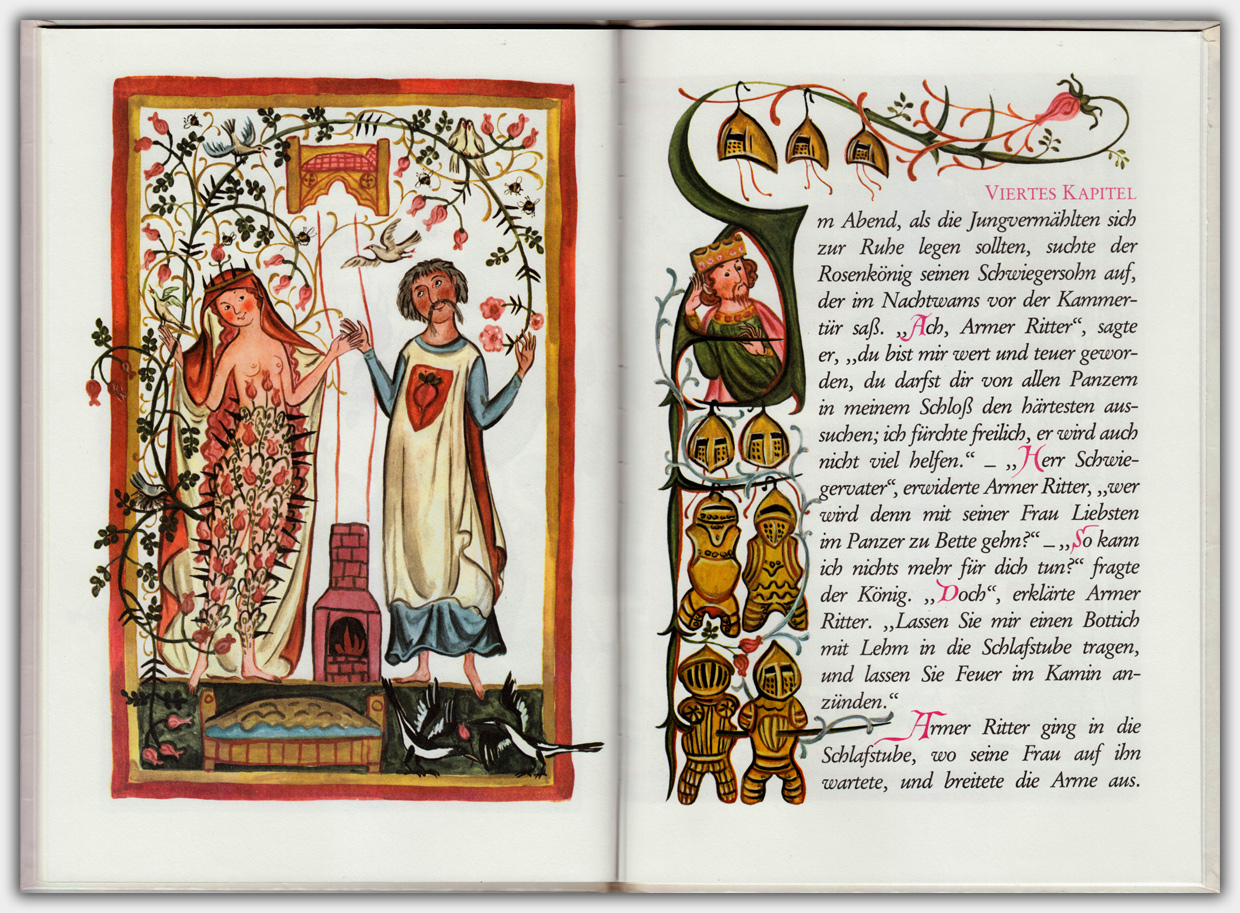 VIERTES KAPITEL
Am Abend, als die Jungvermählten sich
zur Ruhe legen sollten, suchte der
Rosenkönig seinen Schwiegersohn auf,
der im Nachtwams vor der Kammer-
tür saß. „Ach, Armer Ritter“, sagte
er, „du bist mir wert und teuer gewor-
den, du darfst dir von allen Panzern
in meinem Schloß den härtesten aus-
suchen; ich fürchte freilich, er wird auch
nicht viel helfen.“ – „Herr Schwie-
gervater“, erwiderte Armer Ritter, „wer
wird denn mit seiner Frau Liebsten
im Panzer zu Bette gehn?“ – „So kann
ich nichts mehr für dich tun?“ fragte
der König. „Doch“, erklärte Armer
Ritter. „Lassen Sie mir einen Bottich
mit Lehm in die Schlafstube tragen,
und lassen Sie Feuer im Kamin an-
zünden.“
Armer Ritter ging in die
Schlafstube, wo seine Frau auf ihn
wartete, und breitete die Arme aus.